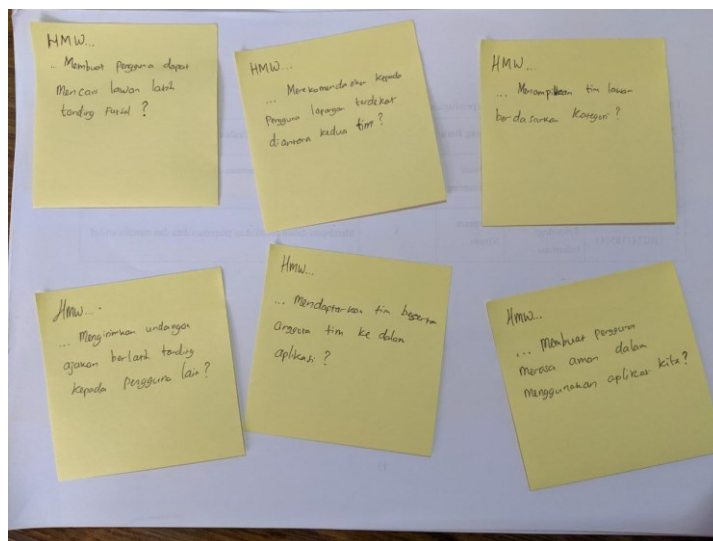 HMW...
... Membuat pengguna dapat
Mencari lawan latih
tanding Futsal ?
HMW...
... Merekomendasikan kepada
pengguna lapangan terdekat
diantara kedua tim?
HMW...
... Menampilkan tim lawan
berdasarkan kategori ?
HMW...
... Mengirimkan undangan
ajakan berlatih tanding
kepada pengguna lain?
HMW...
... Mendaftarkan tim beserta
anggota tim ke dalam
aplikasi ?
HMW...
... Membuat pengguna
merasa aman dalam
menggunakan aplikasi kita?